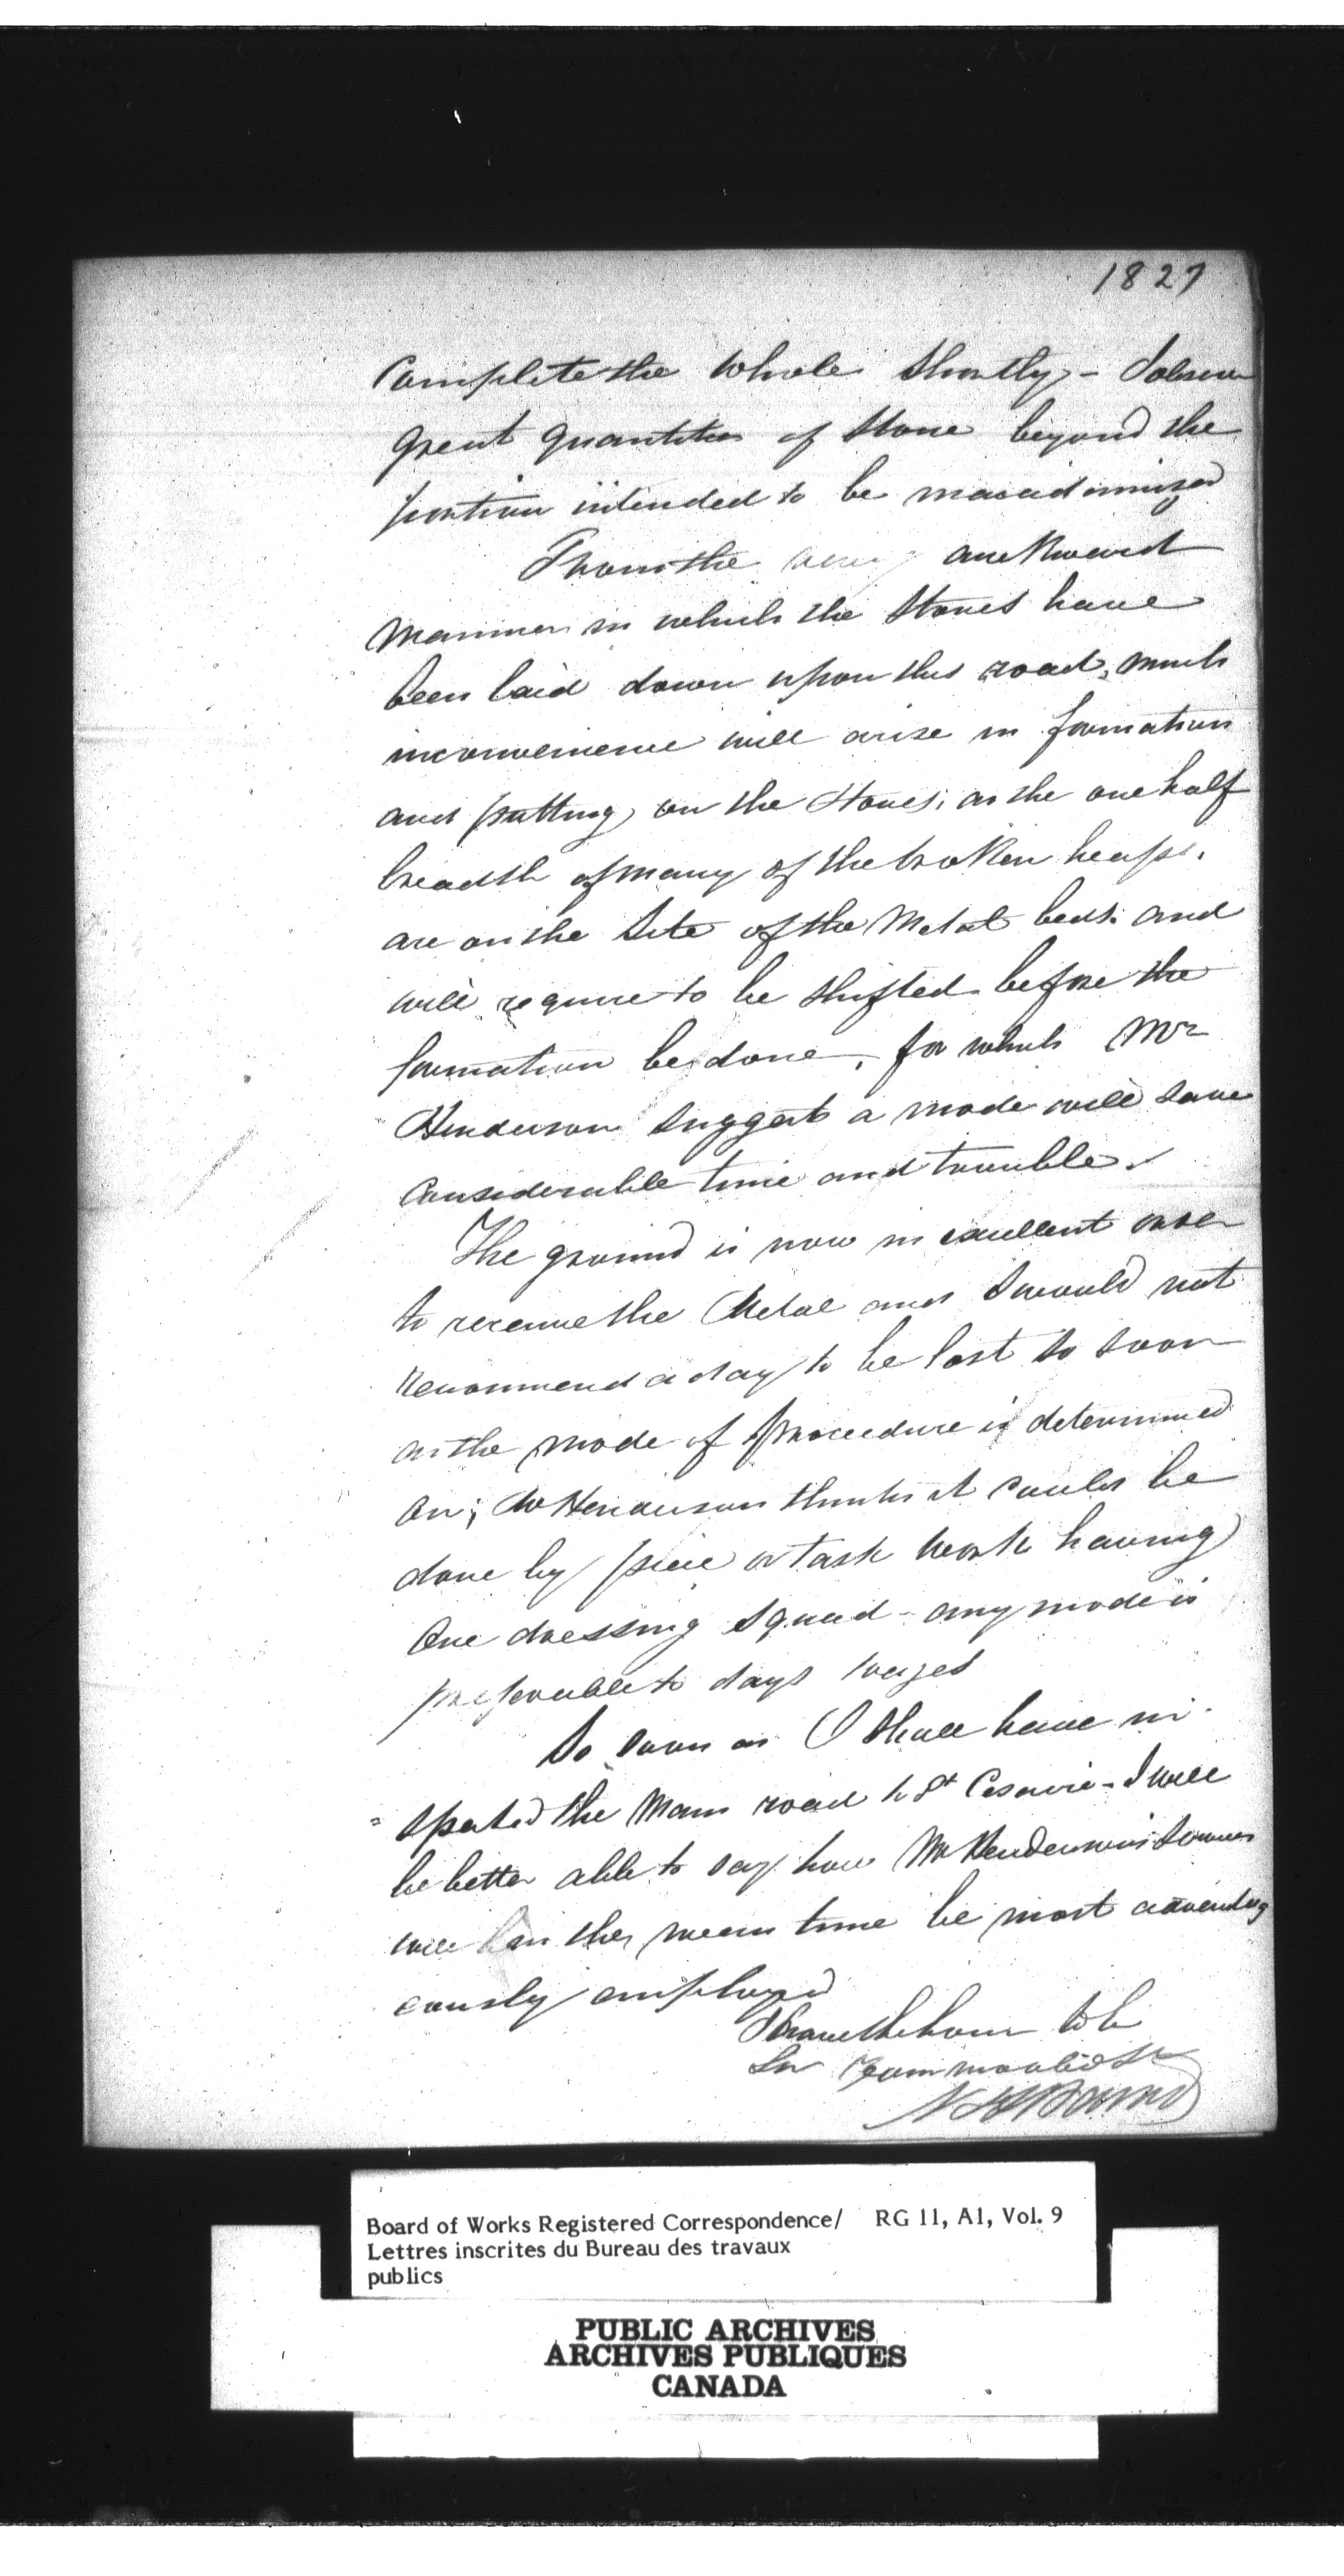 1827
Complete the whole shortly - I observe
great quantities of stone beyond the
portion intended to be macadamized
From the very awkward
manner in which the stones have
been laid down upon this road, much
inconvenience will arise in formation
and putting on the stones; as the one half
breadth of many of the broken heaps.
are on the site of the Metal beds. and
will require to be shifted before the
formation be done, for which Mr
Henderson suggests a mode will save
considerable time and trouble.
The ground is now in excellent order
to receive the Metal and I would not
recommend a day to be lost so soon
as the mode of procedure is determined
on; Mr Henderson thinks it could be
done by piece or task work having
one dressing squad - any mode is
preferable to days wages
So soon as I shall have in
= spected the Main road to St Cesaire - I will
be better able to say how Mr Hendersons services
will in the mean time be most advantag
eously employed
I have the honor to be
Sir Your most obdt Sr
Board of Works Registered Correspondence/ RG 11, A1, Vol. 9
Lettres inscrites du Bureau des travaux
publics
PUBLIC ARCHIVES
ARCHIVES PUBLIQUES
CANADA